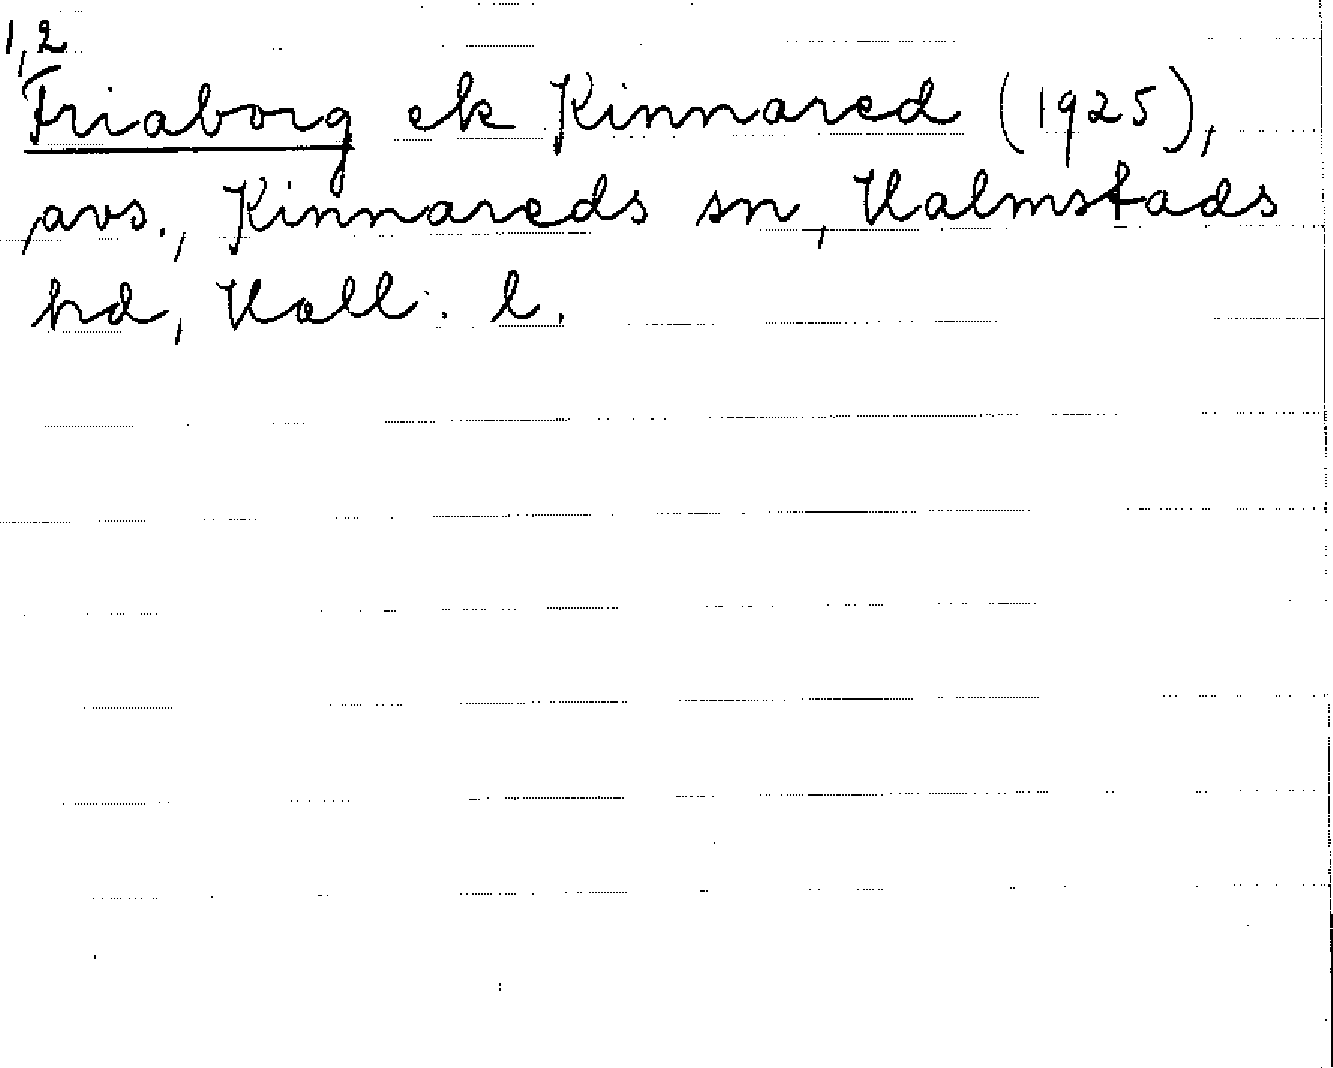 1,2
Friaborg ek Kinnared (1925),
avs., Kinnareds sn, Halmstads
hd, Hall. l.